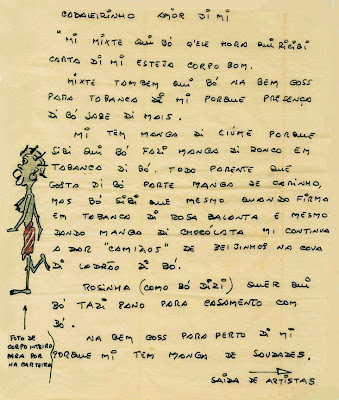 CODALEIRINHO AMÔR DI MI
"MI MIXTE QUI BÓ Q'ELE HORA QUI RICIBI
CARTA DI MI ESTEJA CORPO BOM.
MIXTE TAMBEM QUI BÓ NA BEM GOSS
PARA TOBANCA DI MI PORQUE PRESENÇA
DI BÓ SABE DI MAIS.
MI TÊM MANGA DI CIÚME PORQUE
SIBI QUI BÓ FAZI MANGA DI RONCO EM
TABANCA DI BÓ. TODO PARENTE QUE
GOSTA DI BÓ PORTE MANGA DE CARINHO,
MAS BÓ SIBI QUE MESMO QUANDO FIRMA
EM TOBANCA DI ROSA BALONTA E MESMO
DANDO MANGA DI CHOCOLATA MI CONTINVA
A DAR "CAMIÃOS" DE BEIJINHOS NA COVA
DI LADRÃO DI BÓ.
ROSINHA (COMO BÓ DIZI) QUER QUI
BÓ TAZI PANO PARA CASAMENTO COM
BÓ.
NA BEM GOSS PARA PERTO DI MI
PORQUE MI TEM MANGA DE SAUDADES.
SAÍDA DE ARTISTAS
FOTO DE
CORPO INTEIRO
PARA POR
NA CARTEIRA